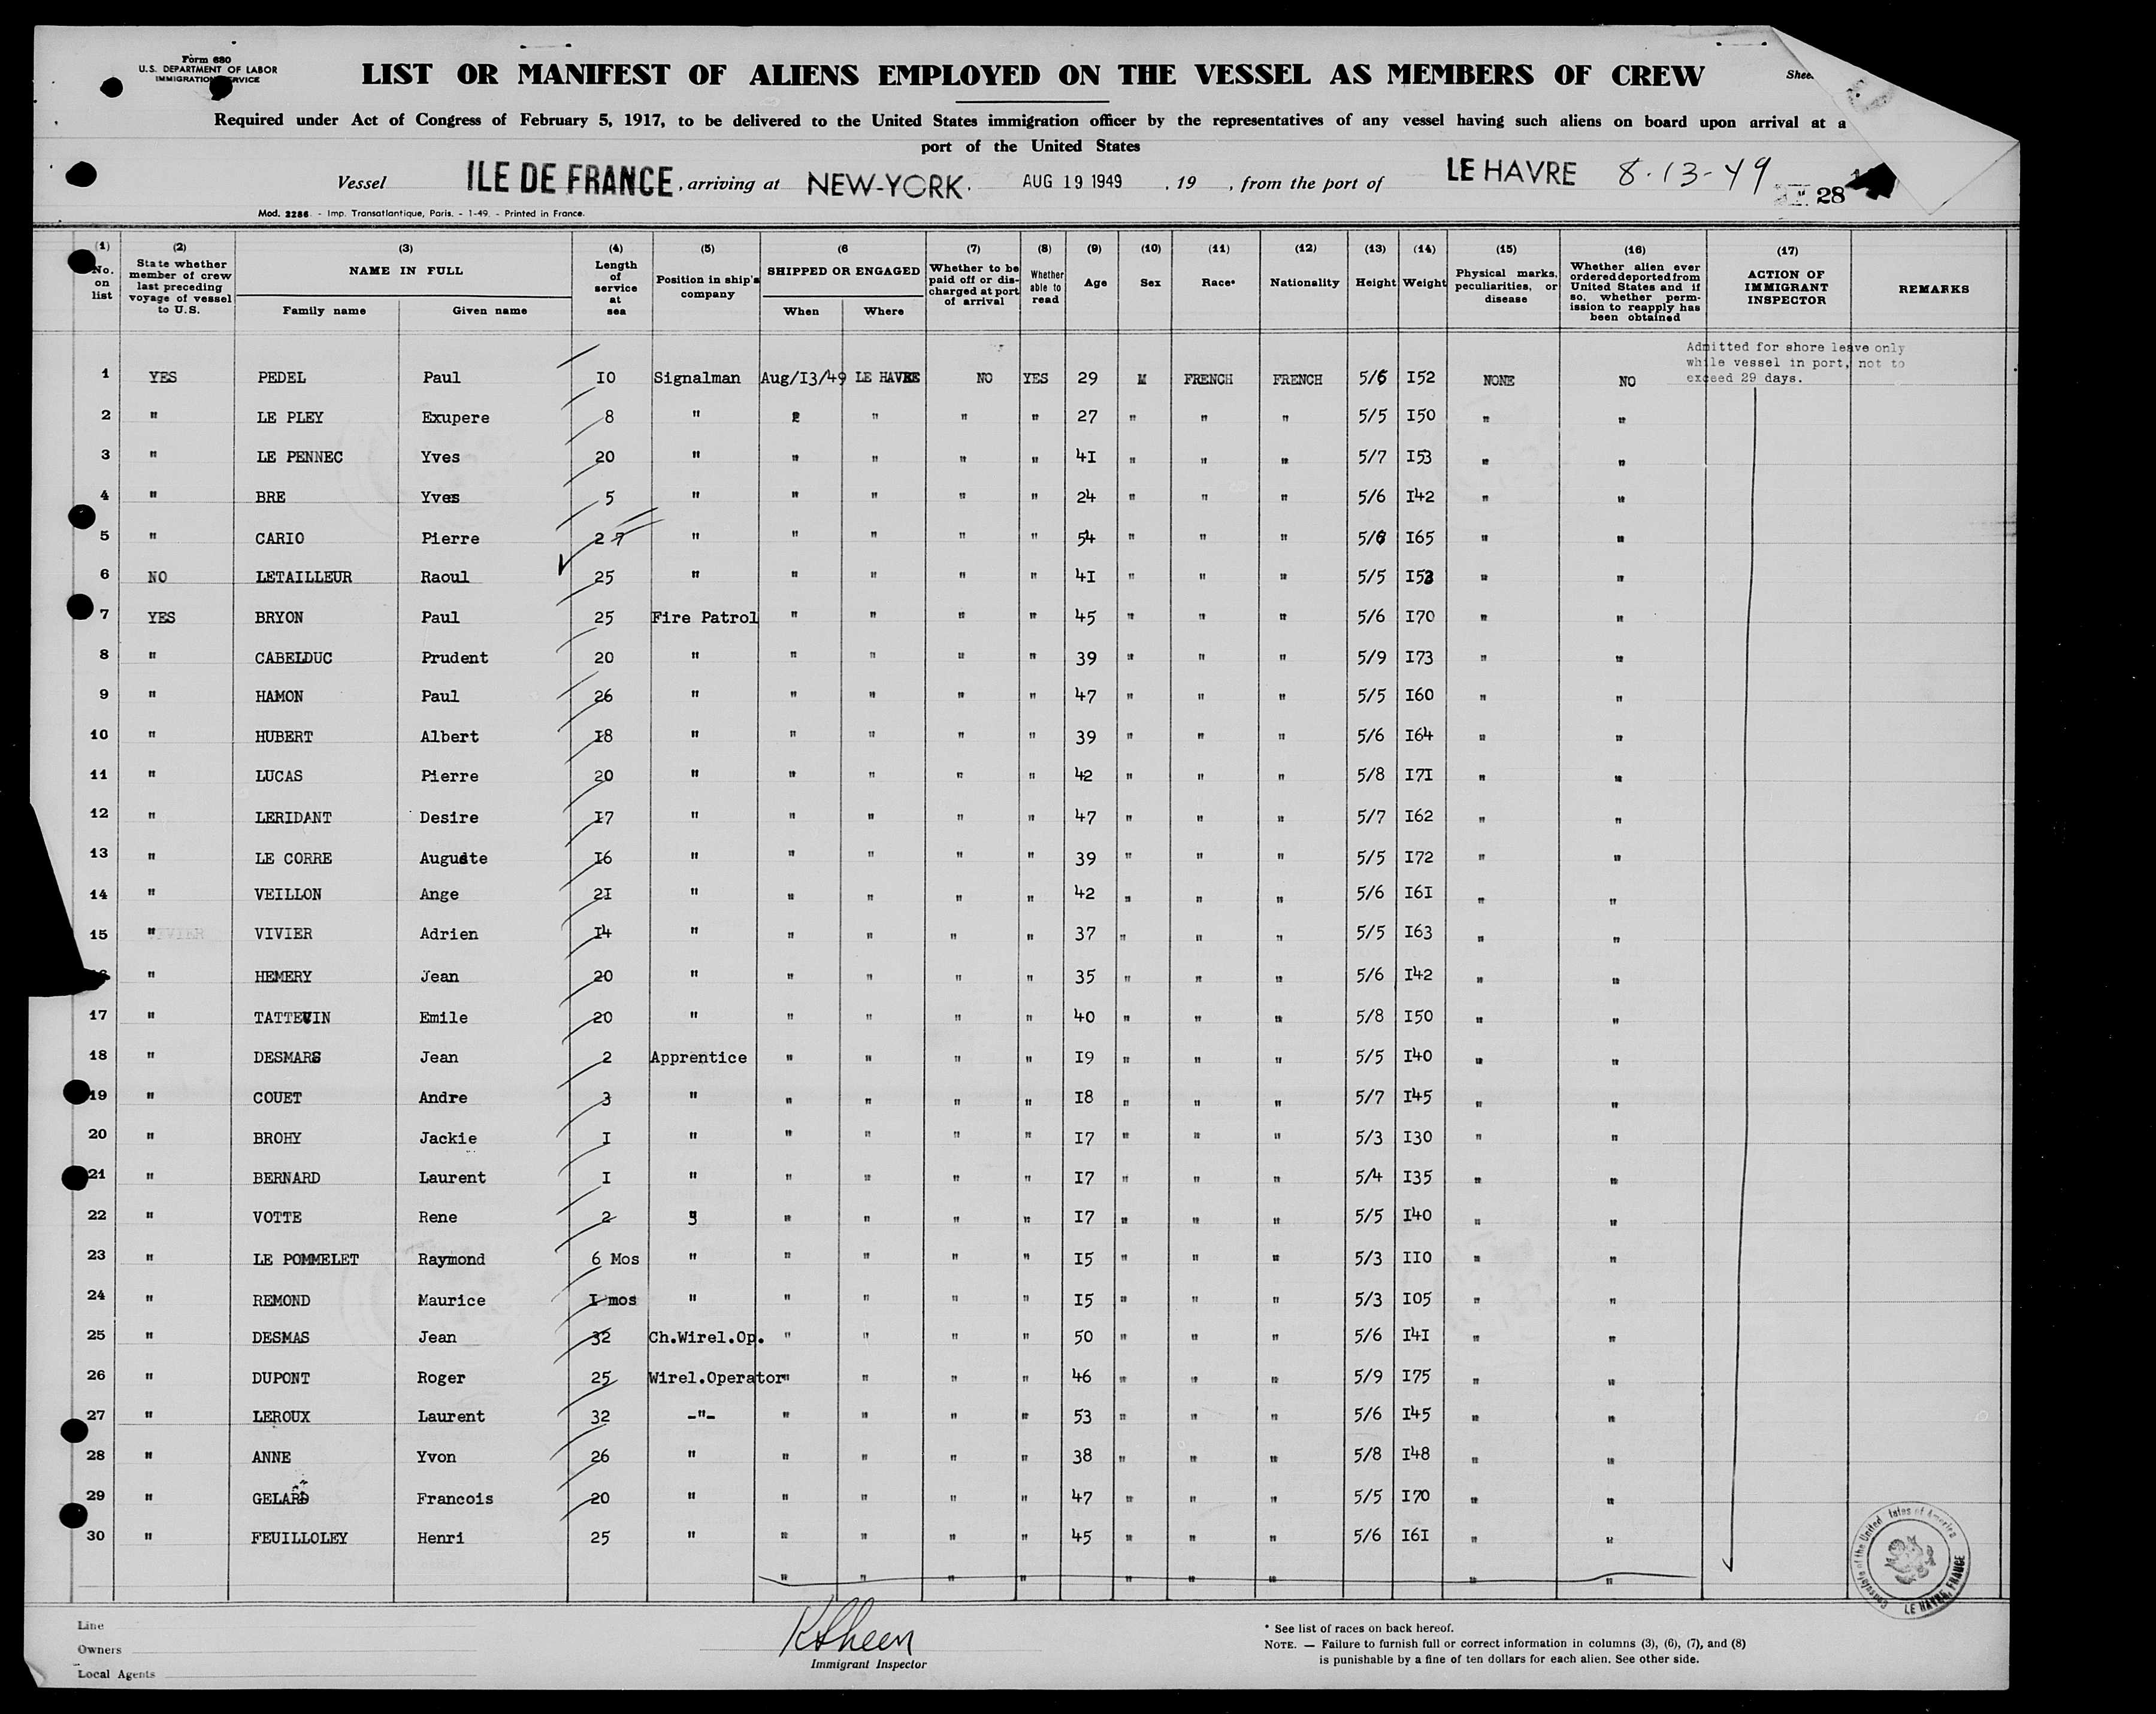 Form 680
U.S. DEPARTMENT OF LABOR
IMMIGRATION SERVICE
LIST OR MANIFEST OF ALIENS EMPLOYED ON THE VESSEL AS MEMBERS OF CREW
Required under Act of Congress of February 5, 1917, to be delivered to the United States immigration officer by the representatives of any vessel having such aliens on board upon arrival at a
port of the United States
Vessel ILE DE FRANCE, arriving at NEW-YORK. AUG 19 1949, 19 , from the port of LE HAVRE 8-13-49
28
Mod. 2286 - Imp. Transatlantique, Paris. - 1-49. - Printed in France.
(1) No. on list (2) State whether member of crew last preceding voyage of vessel to U.S. (3) NAME IN FULL Family name Given name (4) Length of service at sea (5) Position in ship's company (6 SHIPPED OR ENGAGED When Where (7) Whether to be paid off or discharged at port of arrival (8) Whether able to read (9) Age (10) Sex (11) Race* (12) Nationality (13) Height (14) Weight (15) Physical marks, peculiarities, or disease (16) Whether alien ever ordered deported from United States and if so, whether permission to reapply has been obtained (17) ACTION OF IMMIGRANT INSPECTOR REMARKS
Admitted for shore leave only
while vessel in port, not to
exceed 29 days.
1 YES PEDEL Paul I0 Signalman Aug/I3/49 LE HAVRE NO YES 29 M FRENCH FRENCH 5/6 I52 NONE NO
2 " LE PLEY Exupere 8 " " " " " 27 " " " 5/5 I50 " "
3 " LE PENNEC Yves 20 " " " " " 4I " " " 5/7 I53 " "
4 " BRE Yves 5 " " " " " 24 " " " 5/6 I42 " "
5 " CARIO Pierre 27 " " " " " 54 " " " 5/6 I65 " "
6 NO LETAILLEUR Raoul 25 " " " " " 4I " " " 5/5 I53 " "
7 YES BRYON Paul 25 Fire Patrol " " " " 45 " " " 5/6 I70 " "
8 " CABELDUC Prudent 20 " " " " " 39 " " " 5/9 I73 " "
9 " HAMON Paul 26 " " " " " 47 " " " 5/5 I60 " "
10 " HUBERT Albert I8 " " " " " 39 " " " 5/6 I64 " "
11 " LUCAS Pierre 20 " " " " " 42 " " " 5/8 I7I " "
12 " LERIDANT Desire I7 " " " " " 47 " " " 5/7 I62 " "
13 " LE CORRE Auguste I6 " " " " " 39 " " " 5/5 I72 " "
14 " VEILLON Ange 2I " " " " " 42 " " " 5/6 I6I " "
15 " VIVIER Adrien I4 " " " " " 37 " " " 5/5 I63 " "
" HEMERY Jean 20 " " " " " 35 " " " 5/6 I42 " "
17 " TATTEVIN Emile 20 " " " " " 40 " " " 5/8 I50 " "
18 " DESMARS Jean 2 Apprentice " " " " I9 " " " 5/5 I40 " "
19 " COUET Andre 3 " " " " " I8 " " " 5/7 I45 " "
20 " BROHY Jackie I " " " " " I7 " " " 5/3 I30 " "
21 " BERNARD Laurent I " " " " " I7 " " " 5/4 I35 " "
22 " VOTTE Rene 2 " " " " " I7 " " " 5/5 I40 " "
23 " LE POMMELET Raymond 6 Mos " " " " " I5 " " " 5/3 II0 " "
24 " REMOND Maurice I mos " " " " " I5 " " " 5/3 I05 " "
25 " DESMAS Jean 32 Ch.Wirel.Op. " " " " 50 " " " 5/6 I4I " "
26 " DUPONT Roger 25 Wirel.Operator " " " " 46 " " " 5/9 I75 " "
27 " LEROUX Laurent 32 -"- " " " " 53 " " " 5/6 I45 " "
28 " ANNE Yvon 26 " " " " " 38 " " " 5/8 I48 " "
29 " GELARD Francois 20 " " " " " 47 " " " 5/5 I70 " "
30 " FEUILLOLEY Henri 25 " " " " " 45 " " " 5/6 I6I " "
" " " " " " " " "
Consulate of the United States of America
LE HAVRE, FRANCE
Line
Owners
Local Agents
Immigrant Inspector
* See list of races on back hereof.
NOTE. — Failure to furnish full or correct information in columns (3), (6), (7), and (8)
is punishable by a fine of ten dollars for each alien. See other side.